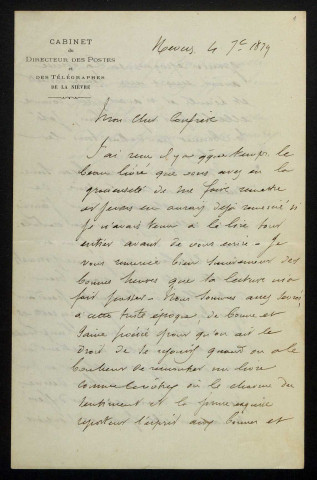 CABINET
du
DIRECTEUR DES POSTES
et
DES TÉLÉGRAPHES
DE LA NIÈVRE
Nevers 4 7e 1879
Mon cher Confrère
J'ai reçu il y a quelque temps le
beau livre que vous avez eu la
gracieuseté de me faire remettre
et je vous en aurais déjà remercié si
je n'avais tenu à le lire tout
entier avant de vous écrire - Je
vous remercie bien sincèrement des
bonnes heures que sa lecture m'a
fait passer - Nous sommes assez
à cette triste époque de bonne et
saine poésie pour qu'on ait le
droit de se réjouir quand on a le
bonheur de rencontrer un livre
comme le vôtre où le charme du
sentiment et la forme exquise
reportent l'esprit aux bonnes et